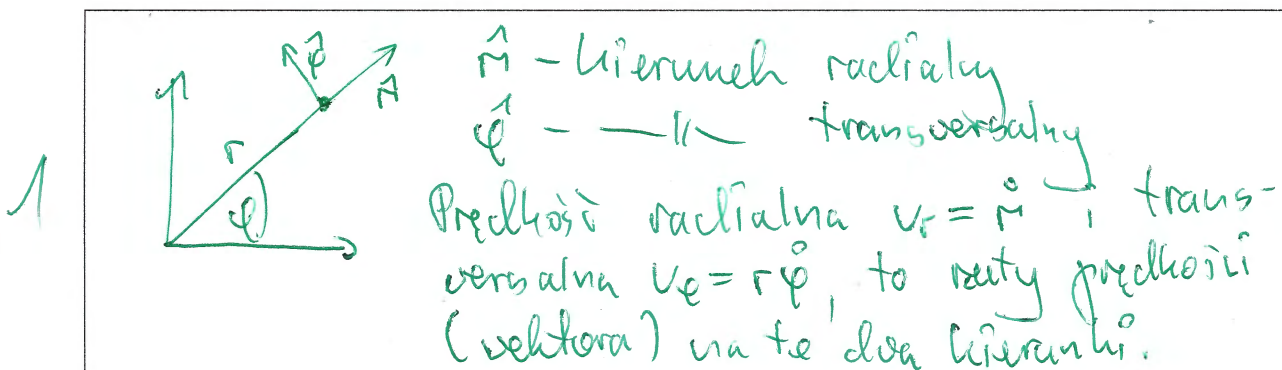 φ̂
r̂
r
φ
1
r̂ – kierunek radialny
φ̂ – —〃— transwersalny
Prędkość radialna vᵣ = ṙ i trans-
wersalna v_φ = rφ̇, to rzuty prędkości
(wektora) na te dwa kierunki.